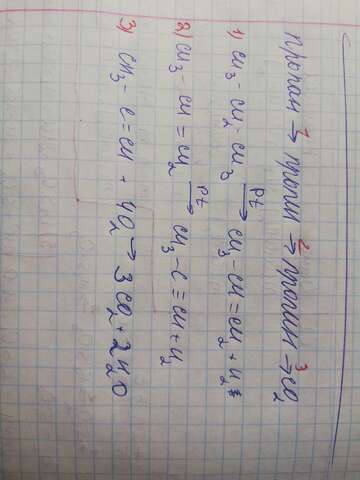 пропан →¹ пропен →² пропин →³ CO₂
1) CH₃ - CH₂ - CH₃ →(Pt) CH₃ - CH = CH₂ + H₂
2) CH₃ - CH = CH₂ →(Pt) CH₃ - C ≡ CH + H₂
3) CH₃ - C ≡ CH + 4O₂ → 3CO₂ + 2H₂O